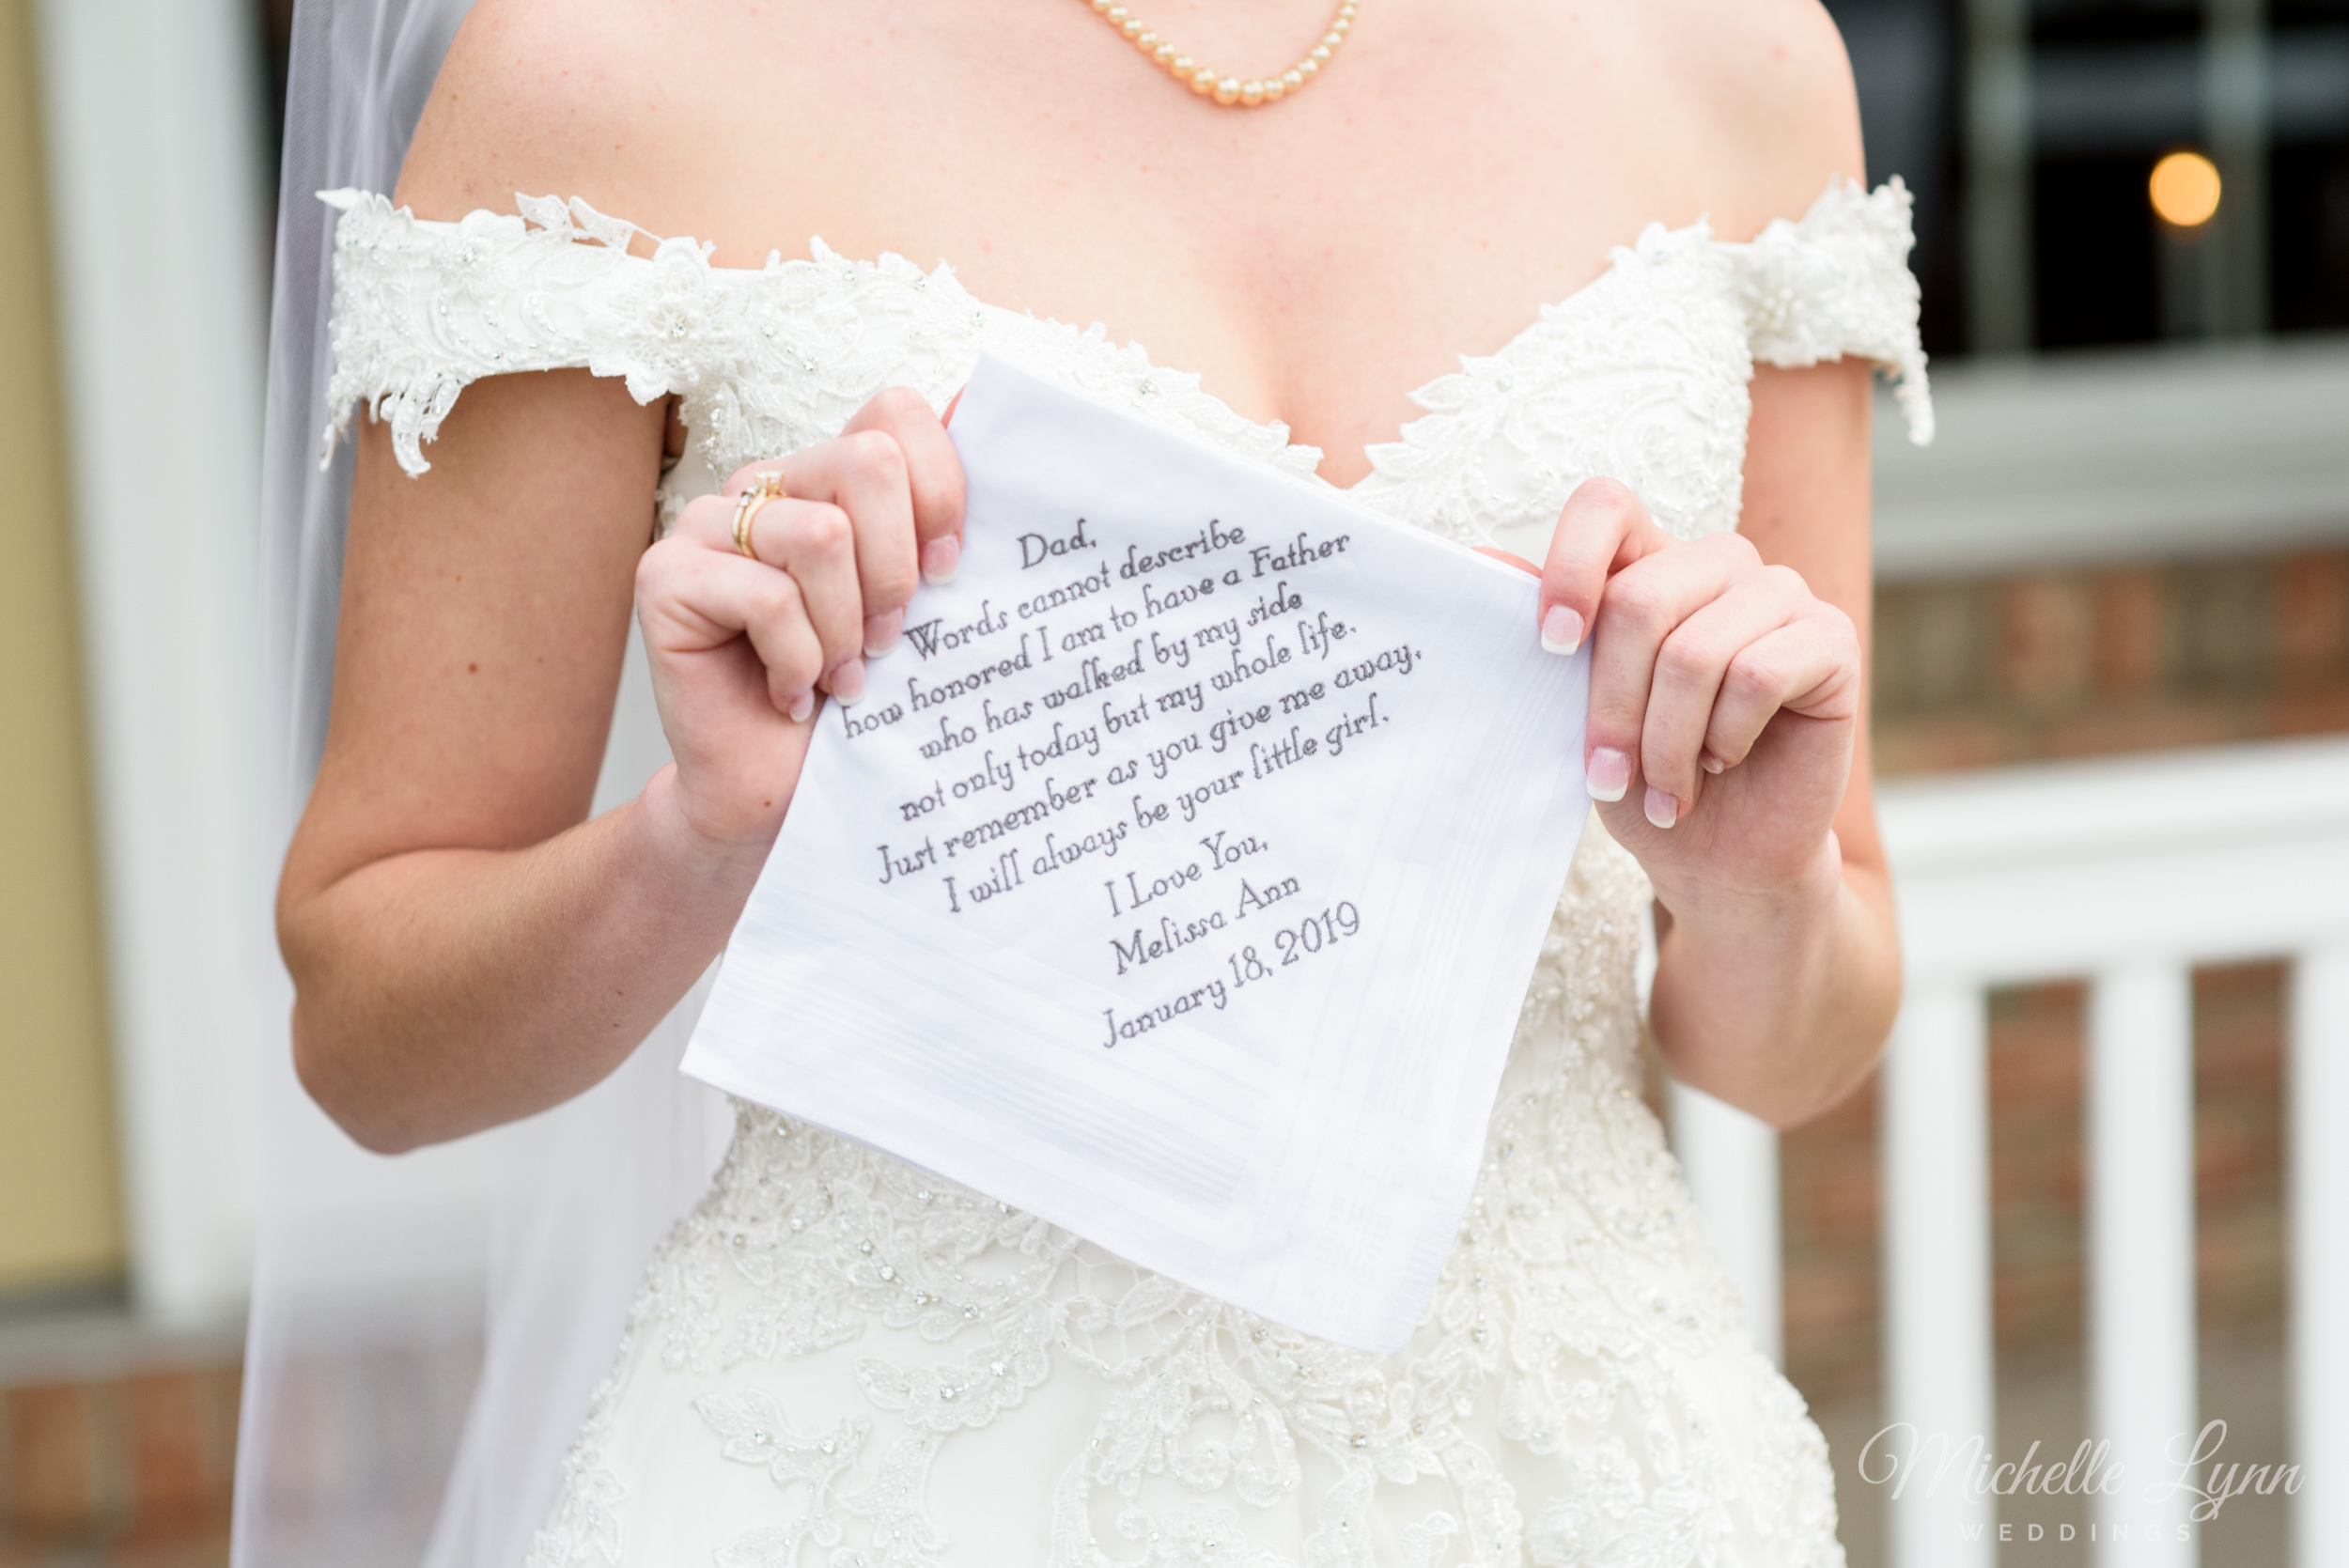 Dad,
Words cannot describe
how honored I am to have a Father
who has walked by my side
not only today but my whole life.
Just remember as you give me away,
I will always be your little girl.
I Love You,
Melissa Ann
January 18, 2019
Michelle Lynn
WEDDINGS